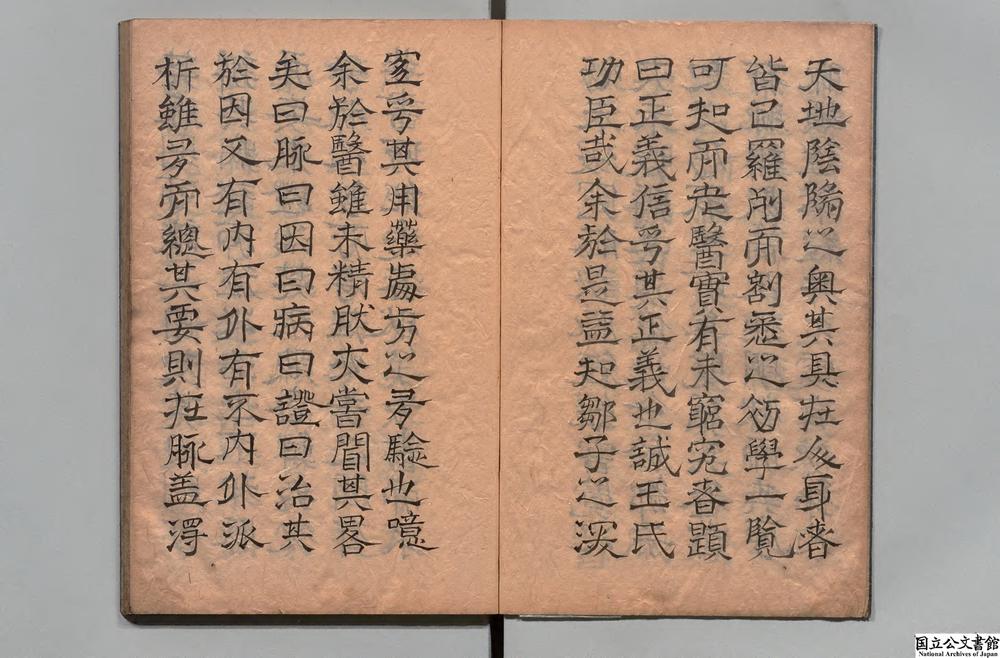 天地陰陽之奧其具在人身者
皆已羅列而剖悉之俾學一覽
可知而老醫實有未窮究者顕
曰正義信乎其正義也誠王氏
功臣哉余於是益知鄒子之深
宜乎其用藥處方之多驗也噫
余於醫雖未精肰亦嘗聞其畧
矣曰脉曰因曰病曰證曰治其
於因又有内有外有不内外派
析雖多而總其要則在脉盖淂
国立公文書館
National Archives of Japan